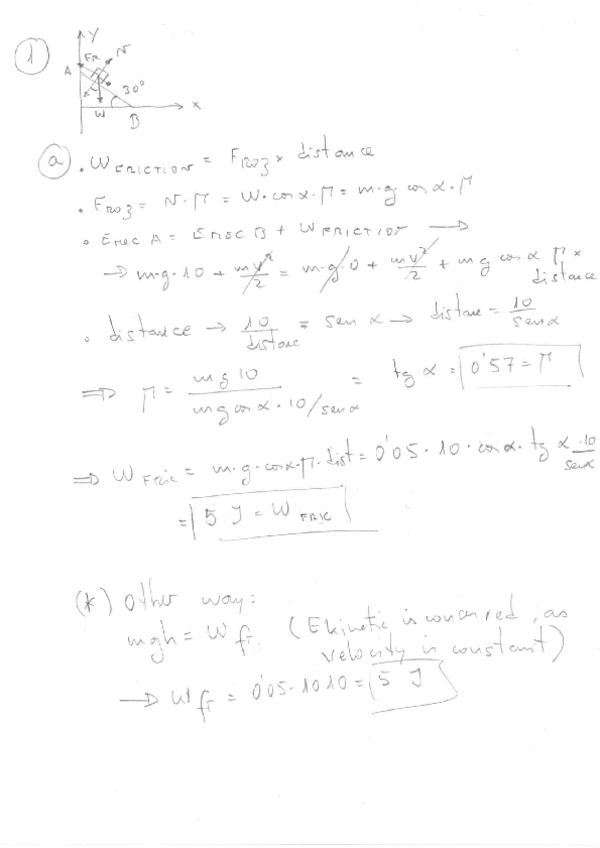 1
y
A FR N
30°
x
W B
a . W FRICTION = F ROZ × distance
. F ROZ = N·μ = W·cosα·μ = m·g cosα·μ
. Emec A = Emec B + W FRICTION →
→ m·g·10 + mv²/2 = m·g·0 + mv²/2 + mg cosα μ × distance
. distance → 10/distance = sen α → distance = 10/sen α
⇒ μ = mg10 / mg cosα·10/senα = tg α = 0'57 = μ
⇒ W Fric = m·g·cosα·μ·dist = 0'05·10·cosα·tg α·10/senα
= 5 J = W FRIC
(*) Other way:
mgh = W fr. (E kinetic is conserved, as
velocity is constant)
→ W fr = 0'05·10·10 = 5 J